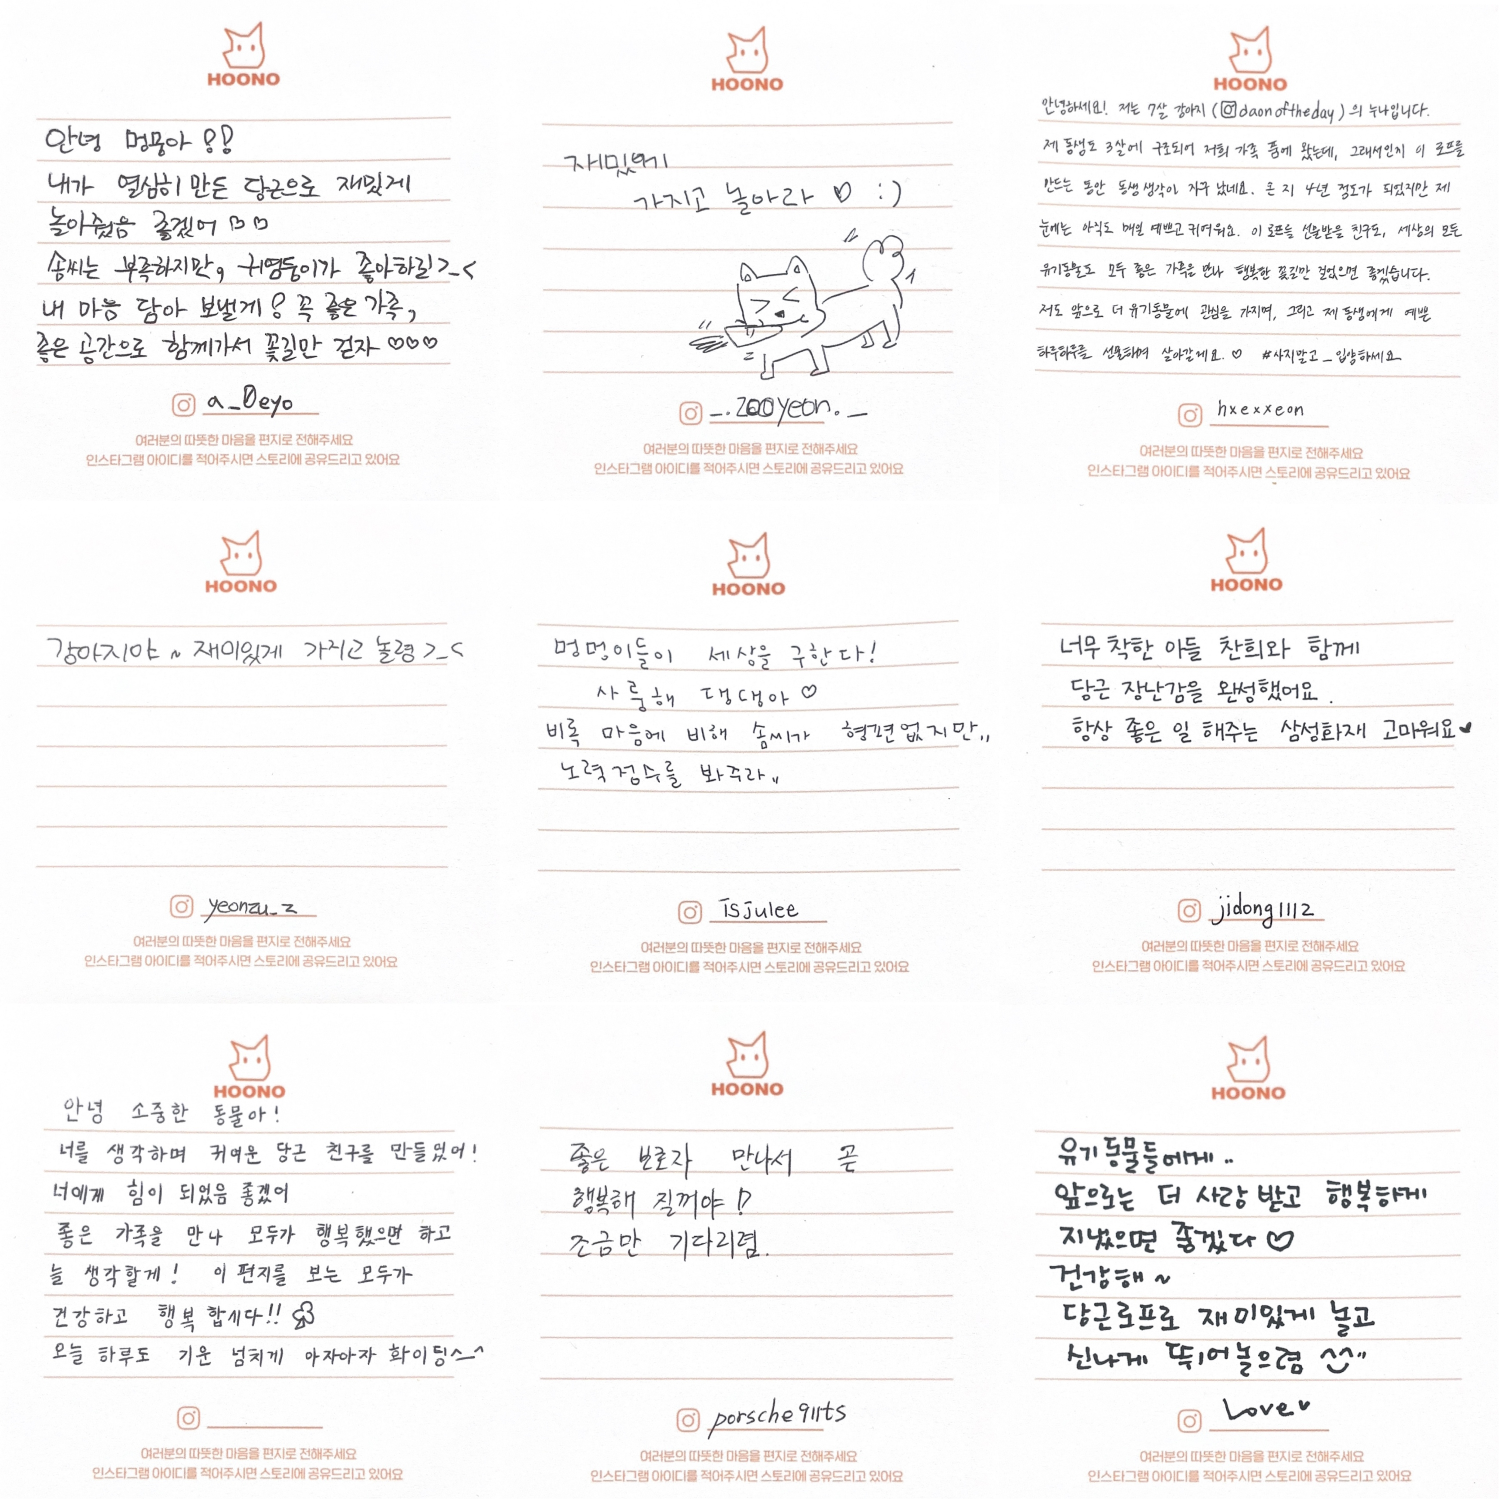 HOONO
안녕 멍뭉아!!
내가 열심히 만든 당근으로 재밌게
놀아줬음 좋겠어 ♡♡
솜씨는 부족하지만, 귀염둥이가 좋아하길>_<
내 마음 담아 보낼게! 꼭 좋은 가족,
좋은 공간으로 함께가서 꽃길만 걷자 ♡♡♡
a_Deyo
여러분의 따뜻한 마음을 편지로 전해주세요
인스타그램 아이디를 적어주시면 스토리에 공유드리고 있어요
HOONO
재밌게
가지고 놀아라 ♡ :)
_.zooyeon._
여러분의 따뜻한 마음을 편지로 전해주세요
인스타그램 아이디를 적어주시면 스토리에 공유드리고 있어요
HOONO
안녕하세요! 저는 7살 강아지 (daonoftheday)의 누나입니다.
제 동생도 3살에 구조되어 저희 가족 품에 왔는데, 그래서인지 이 로프를
만드는 동안 동생 생각이 자꾸 났네요. 온 지 4년 정도가 되었지만 제
눈에는 아직도 매일 예쁘고 귀여워요. 이 로프를 선물받을 친구도, 세상의 모든
유기동물도 모두 좋은 가족을 만나 행복한 꽃길만 걸었으면 좋겠습니다.
저도 앞으로 더 유기동물에 관심을 가지며, 그리고 제 동생에게 예쁜
하루하루를 선물하며 살아갈게요.♡ #사지말고_입양하세요
hxexxeon
여러분의 따뜻한 마음을 편지로 전해주세요
인스타그램 아이디를 적어주시면 스토리에 공유드리고 있어요
HOONO
강아지야~ 재미있게 가지고 놀렴>_<
yeonzu_z
여러분의 따뜻한 마음을 편지로 전해주세요
인스타그램 아이디를 적어주시면 스토리에 공유드리고 있어요
HOONO
멍멍이들이 세상을 구한다!
사룽해 댕댕아♡
비록 마음에 비해 솜씨가 형편없지만,,
노력점수를 봐주라,,
isjulee
여러분의 따뜻한 마음을 편지로 전해주세요
인스타그램 아이디를 적어주시면 스토리에 공유드리고 있어요
HOONO
너무 착한 아들 찬희와 함께
당근 장난감을 완성했어요.
항상 좋은 일 해주는 삼성화재 고마워요♥
jidong1112
여러분의 따뜻한 마음을 편지로 전해주세요
인스타그램 아이디를 적어주시면 스토리에 공유드리고 있어요
HOONO
안녕 소중한 동물아!
너를 생각하며 귀여운 당근 친구를 만들었어!
너에게 힘이 되었음 좋겠어
좋은 가족을 만나 모두가 행복했으면 하고
늘 생각할게! 이 편지를 보는 모두가
건강하고 행복합시다!!
오늘 하루도 기운 넘치게 아자아자 화이팅^_^
여러분의 따뜻한 마음을 편지로 전해주세요
인스타그램 아이디를 적어주시면 스토리에 공유드리고 있어요
HOONO
좋은 보호자 만나서 곧
행복해 질꺼야!
조금만 기다리렴.
porsche911ts
여러분의 따뜻한 마음을 편지로 전해주세요
인스타그램 아이디를 적어주시면 스토리에 공유드리고 있어요
HOONO
유기동물들에게..
앞으로는 더 사랑 받고 행복하게
지냈으면 좋겠다♡
건강해~
당근로프로 재미있게 놀고
신나게 뛰어놀으렴 ^^"
Love♥
여러분의 따뜻한 마음을 편지로 전해주세요
인스타그램 아이디를 적어주시면 스토리에 공유드리고 있어요